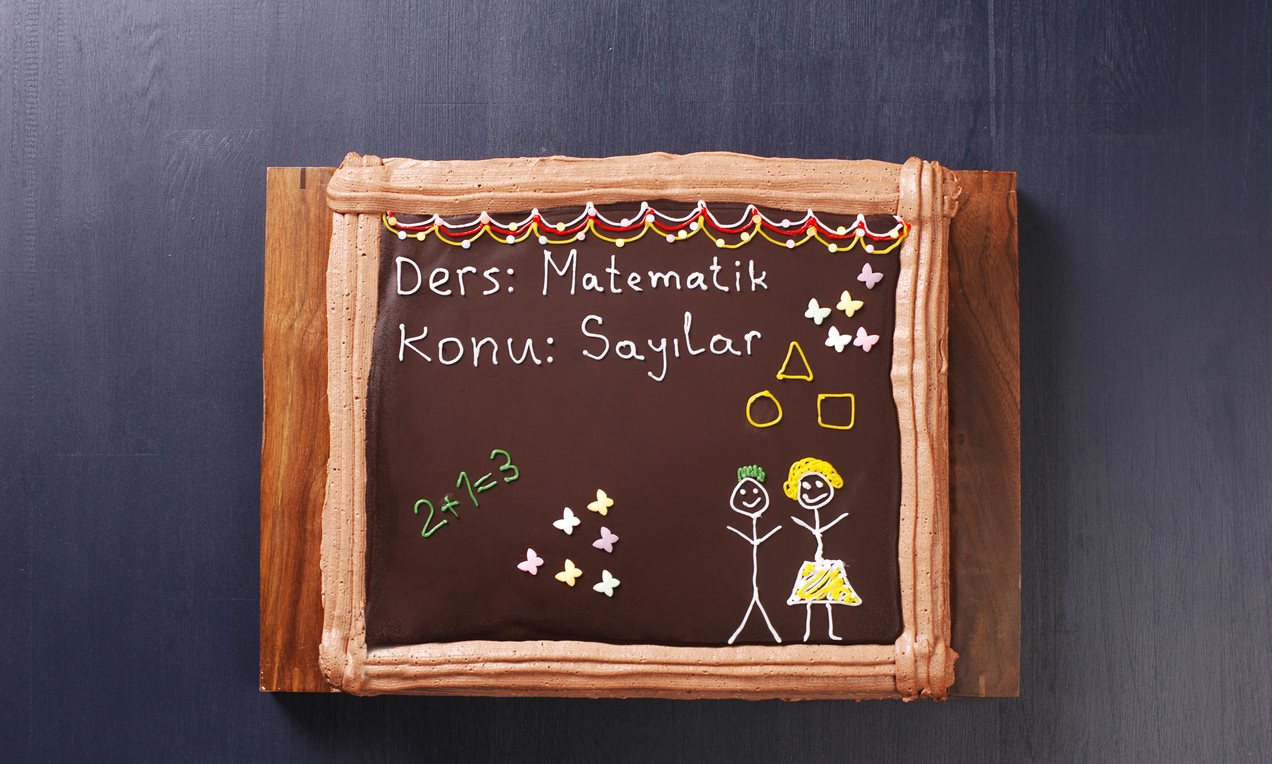 Ders: Matematik
Konu: Sayılar
2+1=3